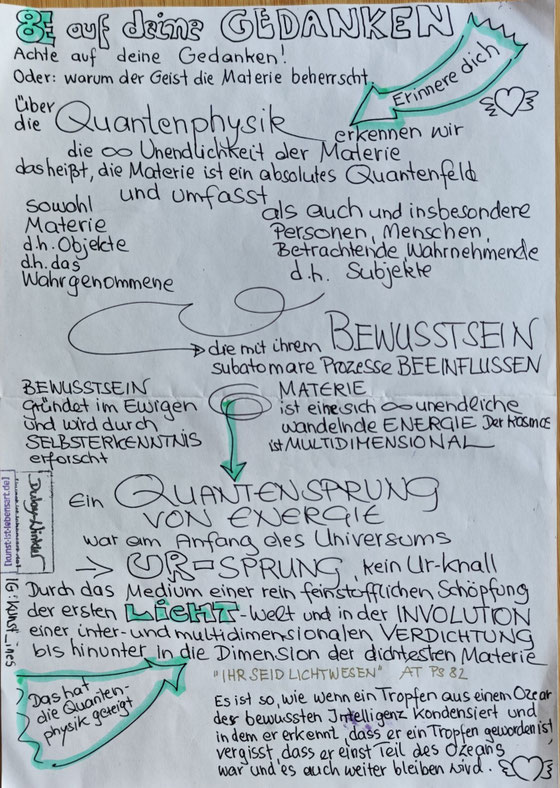 8E auf deine GEDANKEN
Achte auf deine Gedanken!
Oder: warum der Geist die Materie beherrscht.
Erinnere dich
Über die Quantenphysik erkennen wir
die ∞ Unendlichkeit der Materie
das heißt, die Materie ist ein absolutes Quantenfeld
und umfasst
sowohl
Materie
d.h. Objekte
d.h. das
Wahrgenommene
als auch und insbesondere
Personen, Menschen,
Betrachtende, Wahrnehmende
d.h. Subjekte
die mit ihrem BEWUSSTSEIN
subatomare Prozesse BEEINFLUSSEN
BEWUSSTSEIN
gründet im Ewigen
und wird durch
SELBSTERKENNTNIS
erforscht
MATERIE
ist eine sich ∞ unendliche
wandelnde ENERGIE Der Kosmos
ist MULTIDIMENSIONAL
Ein QUANTENSPRUNG
VON ENERGIE
war am Anfang des Universums
→ UR-SPRUNG, kein Ur-Knall
Durch das Medium einer rein feinstofflichen Schöpfung
der ersten LICHT-Welt und in der INVOLUTION
einer inter- und multidimensionalen VERDICHTUNG
bis hinunter in die Dimension der dichtesten Materie
"IHR SEID LICHTWESEN" AT PS 82
Das hat
die Quanten-
physik gezeigt
Es ist so, wie wenn ein Tropfen aus einem Ozean
der bewussten Intelligenz kondensiert und
in dem er erkennt, dass er ein Tropfen geworden ist,
vergisst, dass er einst Teil des Ozeans
war und es auch weiter bleiben wird.
[kunst-ist-lebensart.de]
IG: kunst_ines